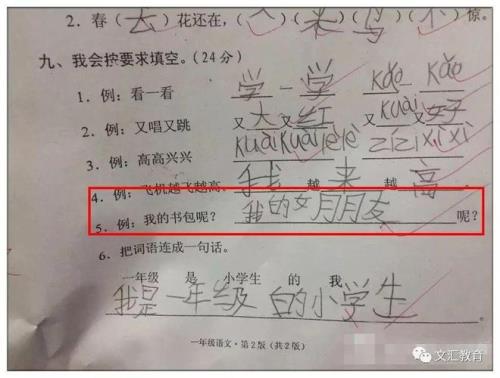 2. 春(去)花还在,(人)(来)(鸟)(不)惊。
九、我会按要求填空。(24分)
1. 例:看一看 学-学 kǎo-kǎo
2. 例:又唱又跳 又大又红 又kuài又好
3. 例:高高兴兴 kuàikuàilèlè zǐzǐxìxì
4. 例:飞机越飞越高。 我越来越高。
5. 例:我的书包呢? 我的女月朋友呢?
6. 把词语连成一句话。
一年级 是 小学生 的 我
我是一年级的小学生。
一年级语文·第2版(共2版)
文汇教育